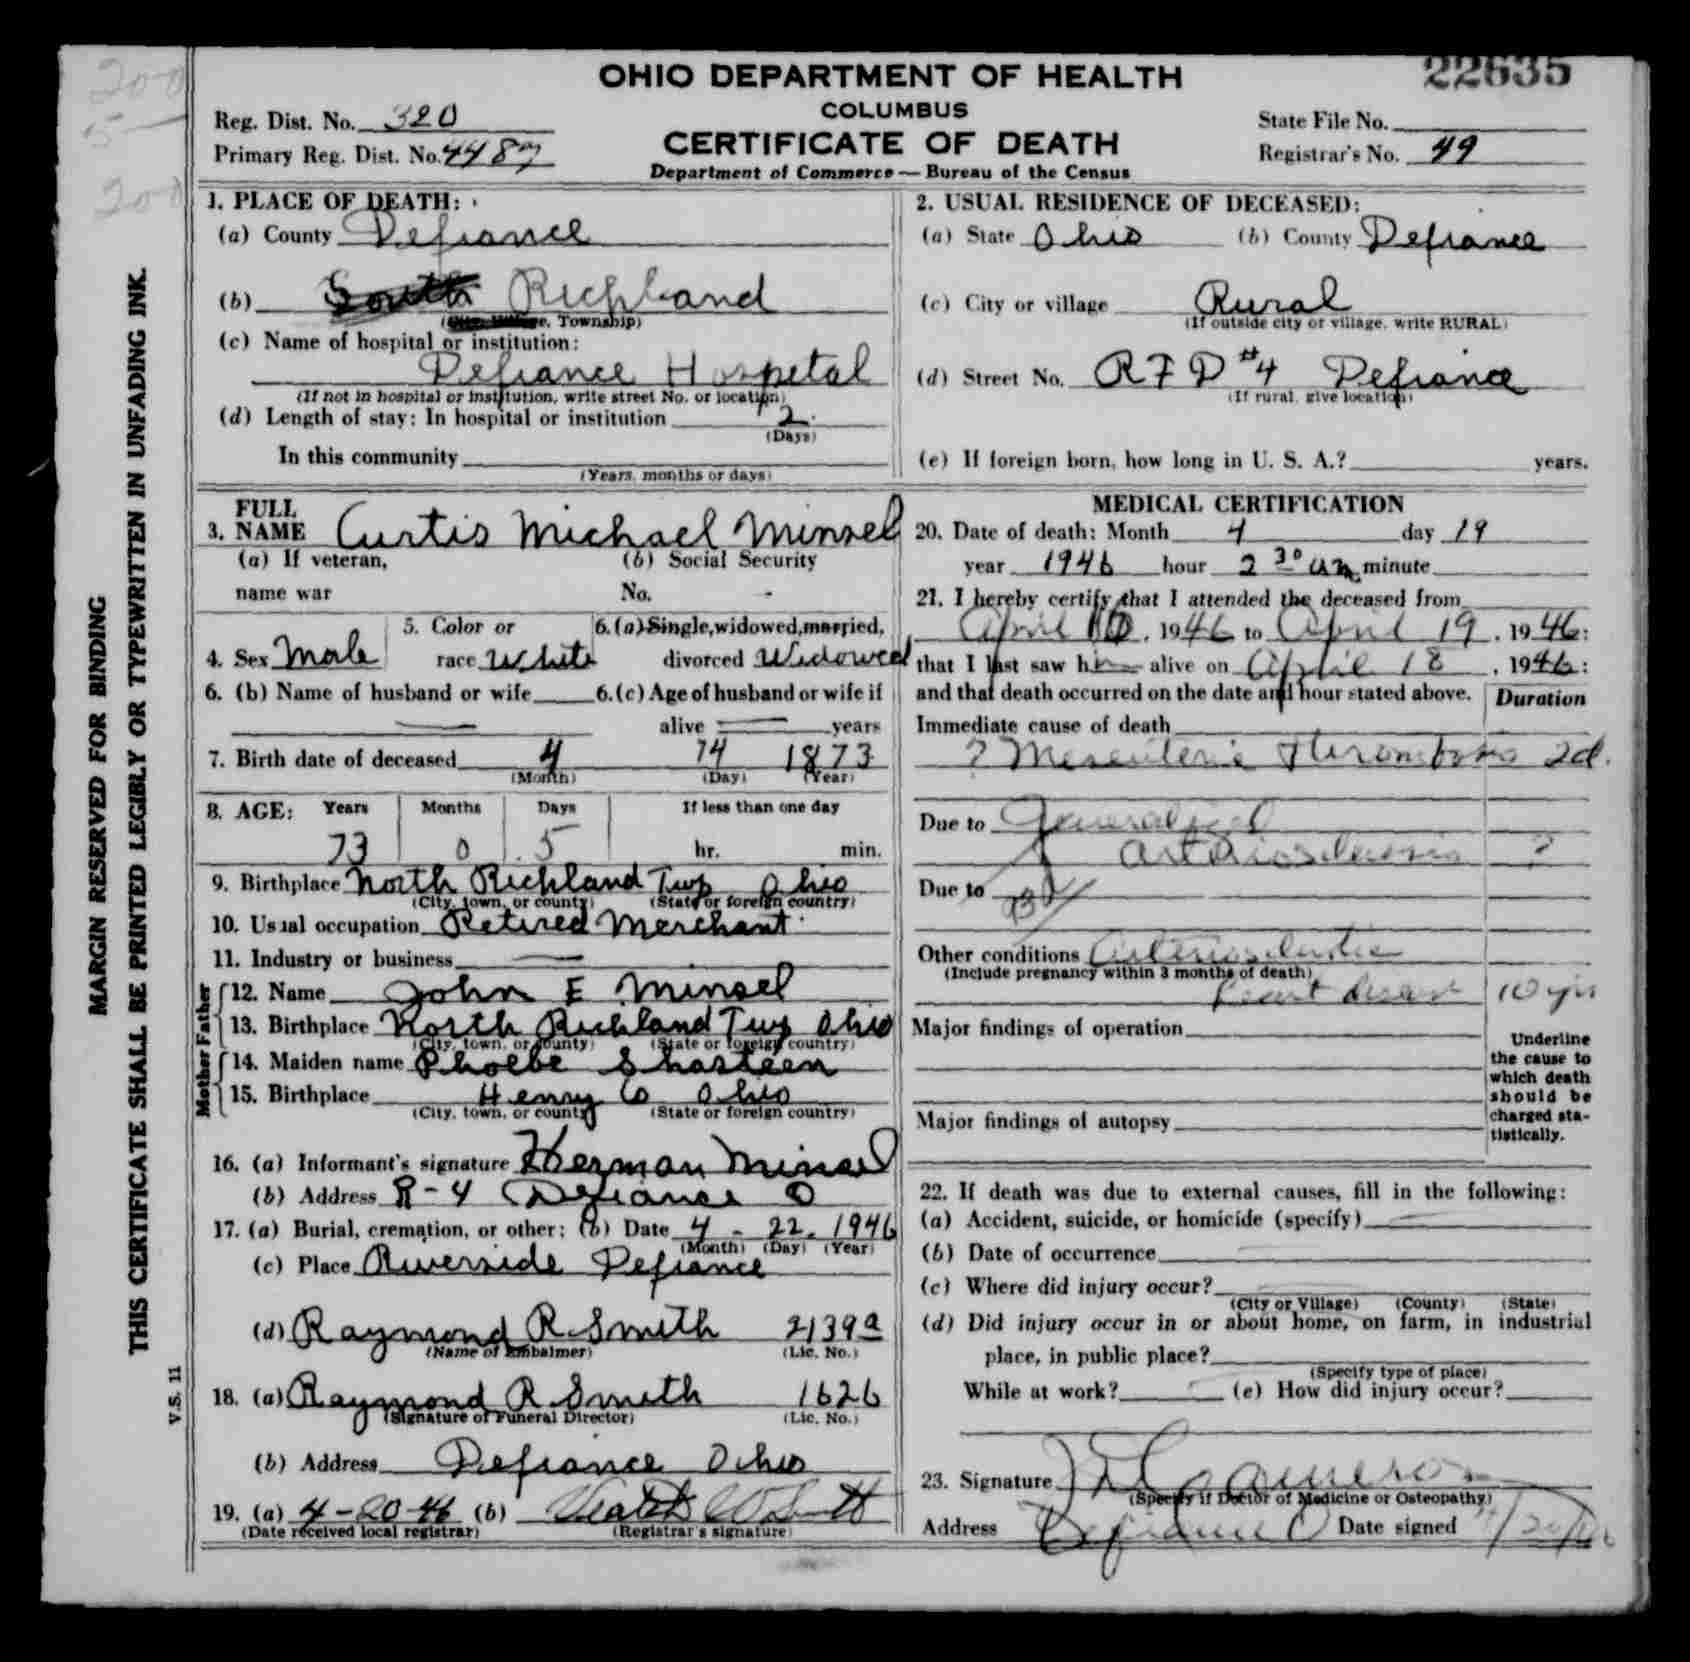 OHIO DEPARTMENT OF HEALTH
22635
COLUMBUS
CERTIFICATE OF DEATH
Department of Commerce — Bureau of the Census
Reg. Dist. No. 320
Primary Reg. Dist. No. 4487
State File No.
Registrar's No. 49
200
5
200
MARGIN RESERVED FOR BINDING
THIS CERTIFICATE SHALL BE PRINTED LEGIBLY OR TYPEWRITTEN IN UNFADING INK.
V.S. 11
1. PLACE OF DEATH:
(a) County Defiance
(b) South Richland
Township)
(c) Name of hospital or institution:
Defiance Hospital
(If not in hospital or institution, write street No. or location)
(d) Length of stay: In hospital or institution 2
(Days)
In this community
(Years, months or days)
2. USUAL RESIDENCE OF DECEASED:
(a) State Ohio (b) County Defiance
(c) City or village Rural
(If outside city or village, write RURAL)
(d) Street No. RFD #4 Defiance
(If rural, give location)
(e) If foreign born, how long in U. S. A.? years.
3. FULL NAME Curtis Michael Minsel
(a) If veteran, (b) Social Security
name war No. -
4. Sex Male 5. Color or race White 6. (a) Single, widowed, married, divorced Widowed
6. (b) Name of husband or wife 6. (c) Age of husband or wife if
alive years
7. Birth date of deceased 4 14 1873
(Month) (Day) (Year)
8. AGE: Years Months Days If less than one day
73 0 5 hr. min.
9. Birthplace North Richland Twp Ohio
(City, town, or county) (State or foreign country)
10. Usual occupation Retired Merchant
11. Industry or business
Father
12. Name John E Minsel
13. Birthplace North Richland Twp Ohio
(City, town, or county) (State or foreign country)
Mother
14. Maiden name Phoebe Shasteen
15. Birthplace Henry Co Ohio
(City, town, or county) (State or foreign country)
16. (a) Informant's signature Herman Minsel
(b) Address R-4 Defiance O
17. (a) Burial, cremation, or other: (b) Date 4 - 22. 1946
(Month) (Day) (Year)
(c) Place Riverside Defiance
(d) Raymond R. Smith 2139a
(Name of Embalmer) (Lic. No.)
18. (a) Raymond R Smith 1626
(Signature of Funeral Director) (Lic. No.)
(b) Address Defiance Ohio
19. (a) 4-20-46 (b)
(Date received local registrar) (Registrar's signature)
MEDICAL CERTIFICATION
20. Date of death: Month 4 day 19
year 1946 hour 2 30 am minute
21. I hereby certify that I attended the deceased from
April 10, 1946 to April 19, 1946:
that I last saw him alive on April 18, 1946:
and that death occurred on the date and hour stated above. Duration
Immediate cause of death
? Mesenteric Thrombosis 2d.
Due to Generalized
Arteriosclerosis ?
Due to
Other conditions Arteriosclerotic
(Include pregnancy within 3 months of death)
heart disease 10 yrs
Major findings of operation
Underline the cause to which death should be charged statistically.
Major findings of autopsy
22. If death was due to external causes, fill in the following:
(a) Accident, suicide, or homicide (specify)
(b) Date of occurrence
(c) Where did injury occur?
(City or Village) (County) (State)
(d) Did injury occur in or about home, on farm, in industrial
place, in public place?
(Specify type of place)
While at work? (e) How did injury occur?
23. Signature Cameron
(Specify if Doctor of Medicine or Osteopathy)
Address Defiance O Date signed 4/20/46